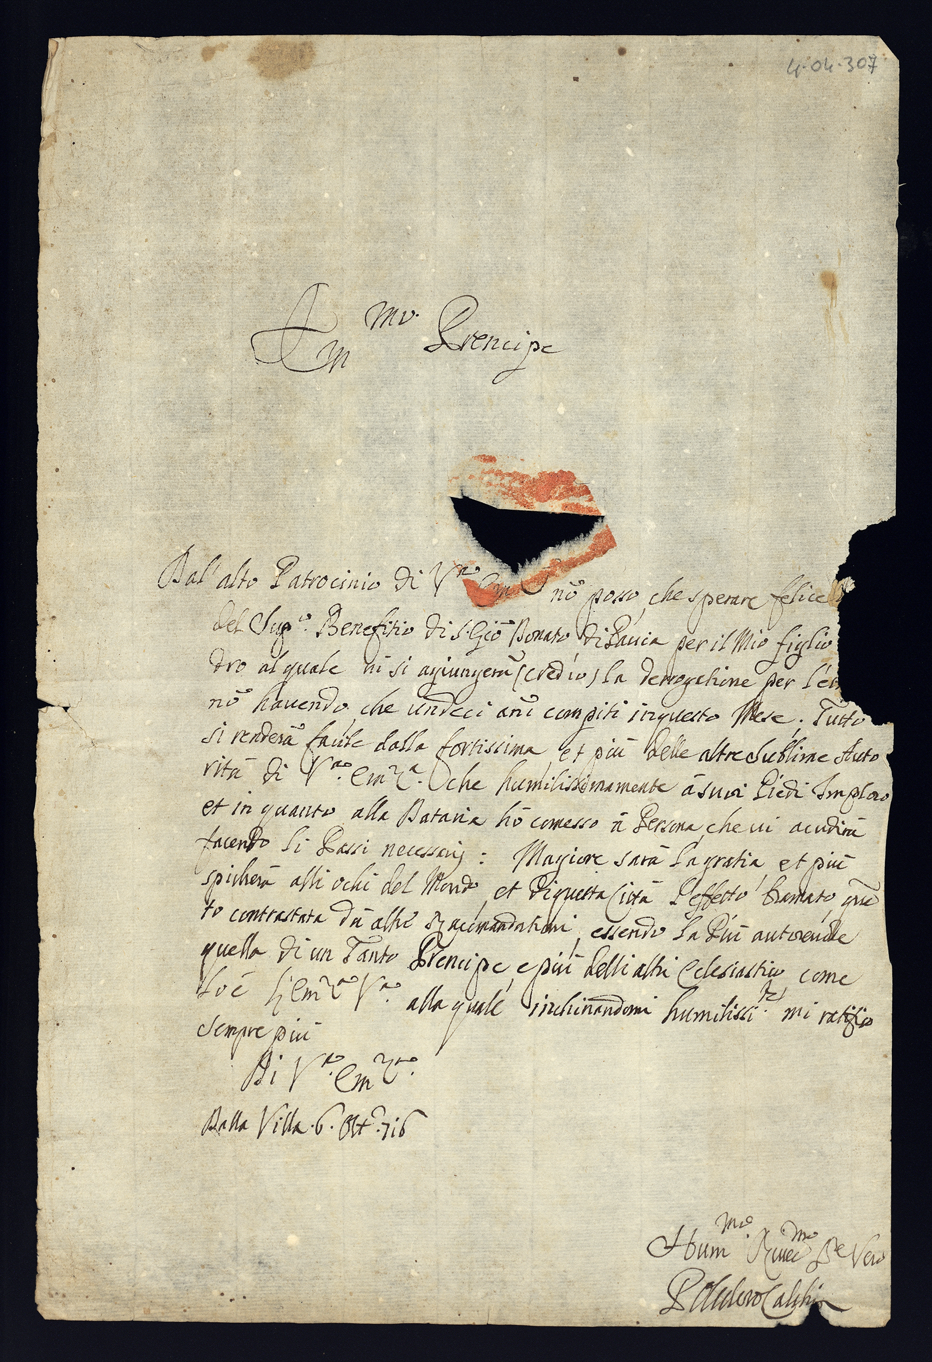 4.04.307
Em mo. Prencipe
Dal'alto Patrocinio di Vra Em non posso, che sperare felice
del Supo. Benefitio di S. Gio Donato di Pavia per il Mio figlio
dro al quale vi si agiungerà (cred'io) la derogatione per l'
non havendo, che undeci ani compiti in questo Mese. Tutto
si renderà facile dalla fortissima, et più delle altre sublime Auto
rità di Vra. Emza. che humilissimamente à suoi Piedi Imploro
et in quanto alla Dataria hò comesso à Persona, che vi acudirà
facendo li Passi necessarij: Magiore sarà la gratia, et più
spicherà alli ochi del Mondo, et di questa Città l'effetto bramato, quan
to contrastata da altre racomandationi, essendo la Più autorevole
quella di un Tanto Prencipe, e più delli altri Eclesiastico, come
lo è Emza Vra. alla quale inchinandomi humilissi.te mi ratifico
sempre più
Di Vra. Emza.
Dalla Villa .6. Ott.e 716
Hummo. Rivermo. Se Vero
Polidoro Calchi